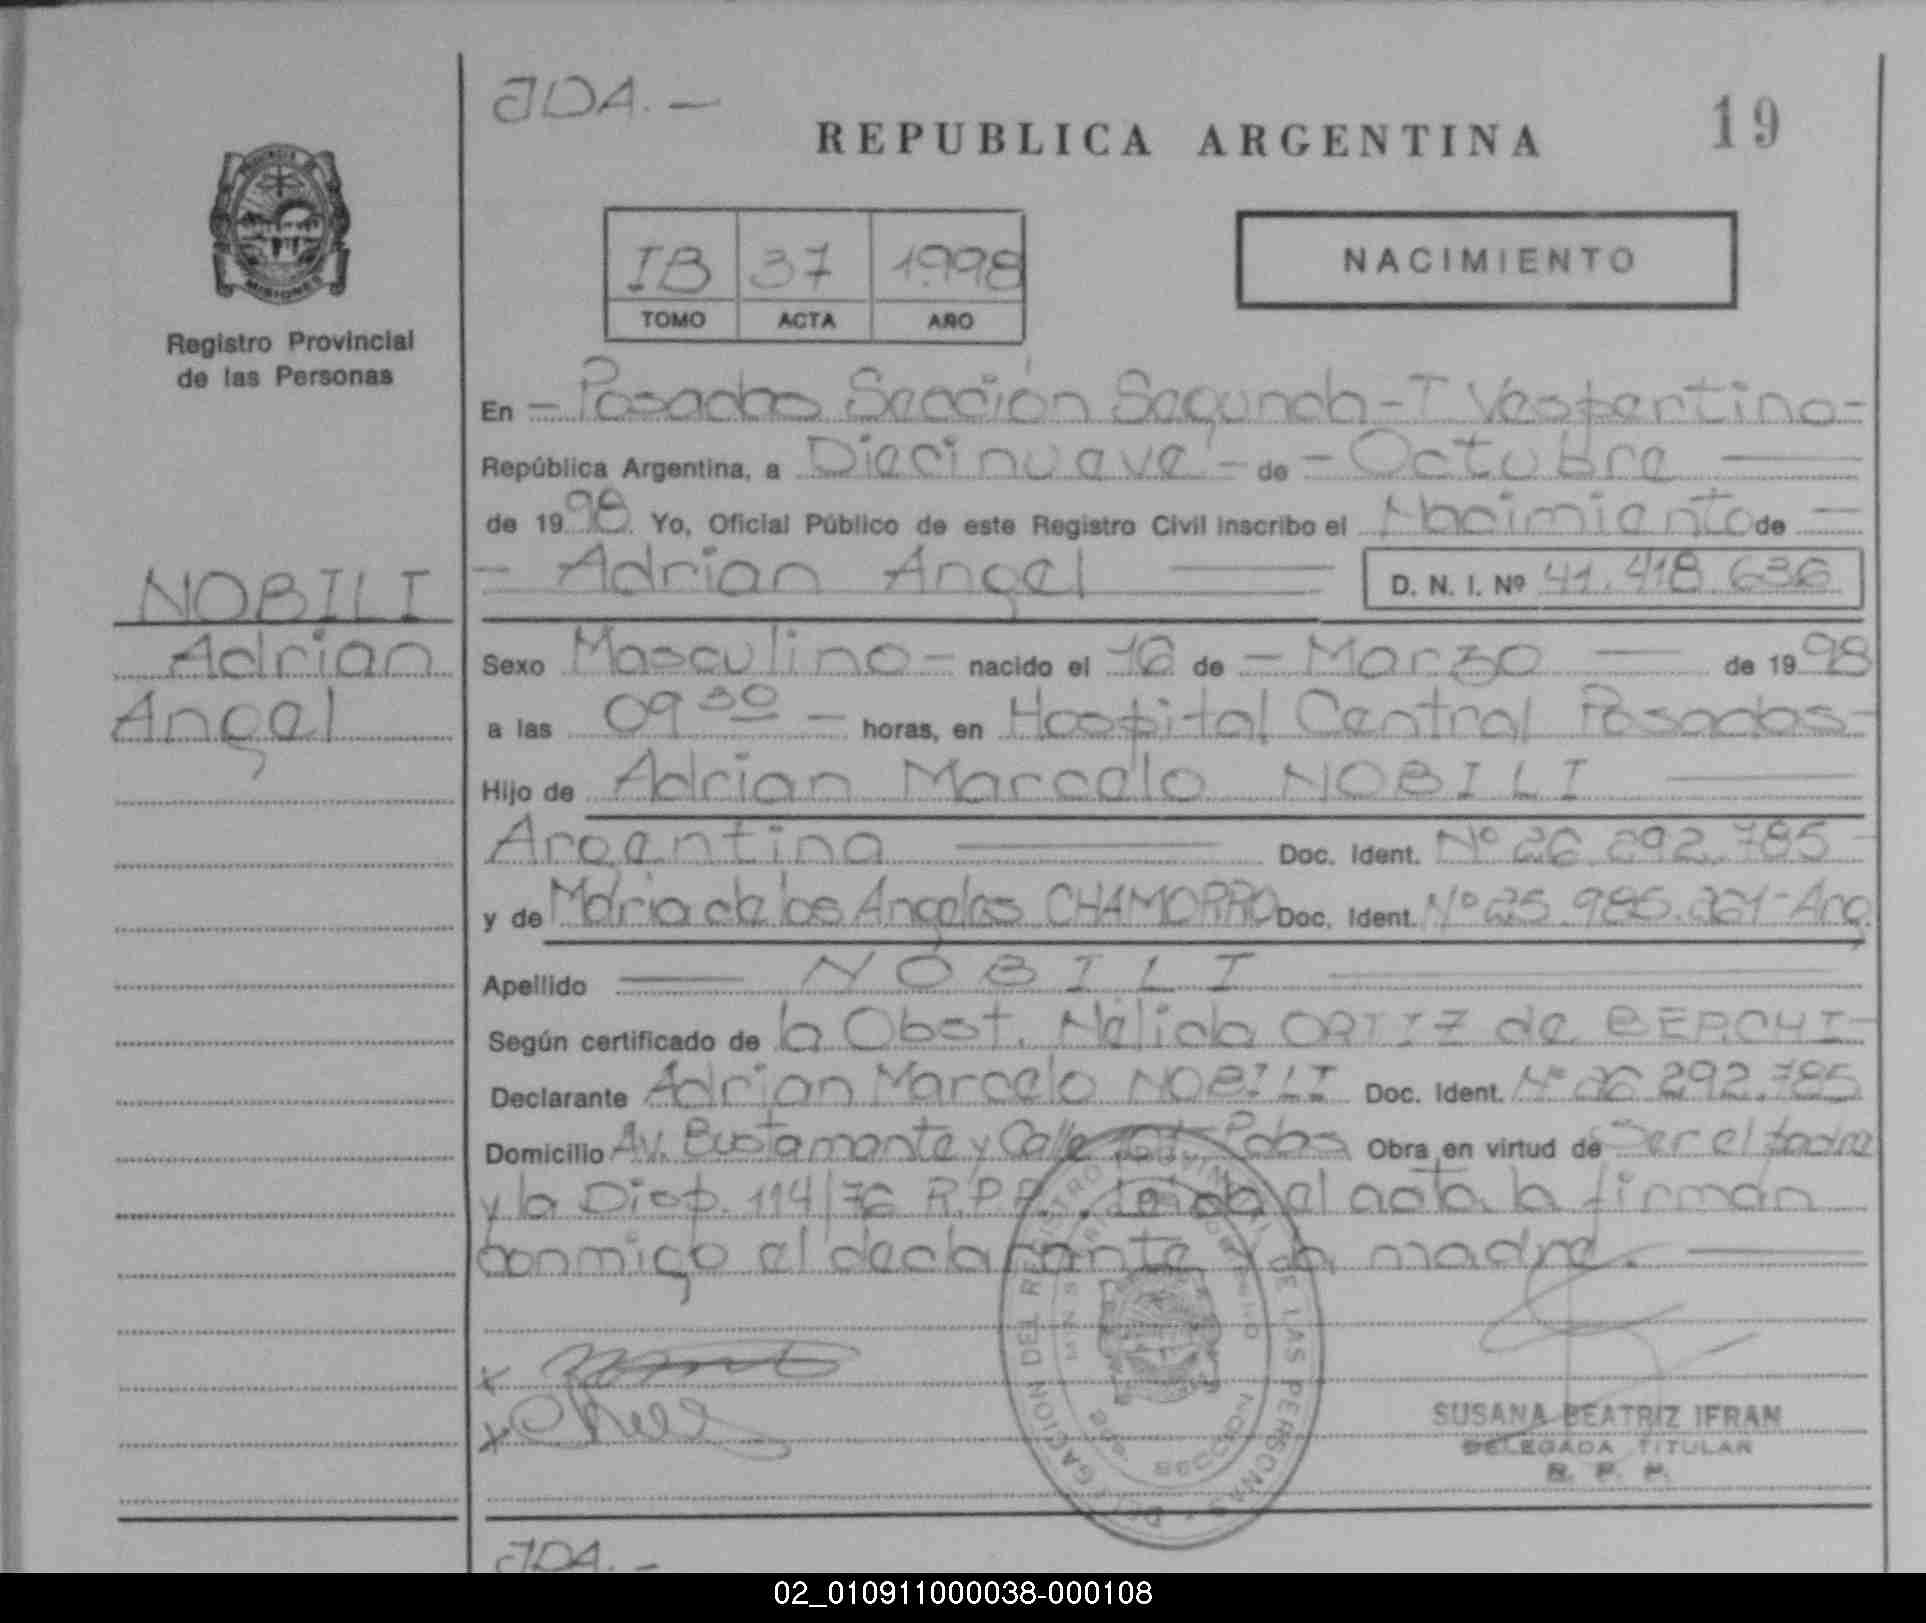 JDA.—
REPUBLICA ARGENTINA
19
MISIONES
Registro Provincial
de las Personas
IB 37 1998
TOMO ACTA AÑO
NACIMIENTO
En - Posadas Sección Segunda - T Vespertino -
República Argentina, a Diecinueve - de - Octubre
de 1998. Yo, Oficial Público de este Registro Civil inscribo el Nacimiento de
- Adrian Angel D. N. I. Nº 41.418.636
NOBILI
Adrian
Angel
Sexo Masculino - nacido el 16 de - Marzo — de 1998
a las 09 30 - horas, en Hospital Central Posadas -
Hijo de Adrian Marcelo NOBILI
Argentina Doc. Ident. Nº 26.292.785 -
y de Maria de los Angeles CHAMORRO Doc. Ident. Nº 25.985.221 - Arg.
Apellido — NOBILI
Según certificado de la Obst. Nélida ORTIZ de BERCHI -
Declarante Adrian Marcelo NOBILI Doc. Ident. Nº 26.292.785
Domicilio Av. Bustamante y Calle Pdas Obra en virtud de Ser el padre
y la Disp. 114/76 R.P.P. Leida el acta la firman
conmigo el declarante y la madre.
DELEGACION DEL REGISTRO PROVINCIAL DE LAS PERSONAS
SUSANA BEATRIZ IFRAN
DELEGADA TITULAR
R. P. P.
JDA.-
02_010911000038-000108